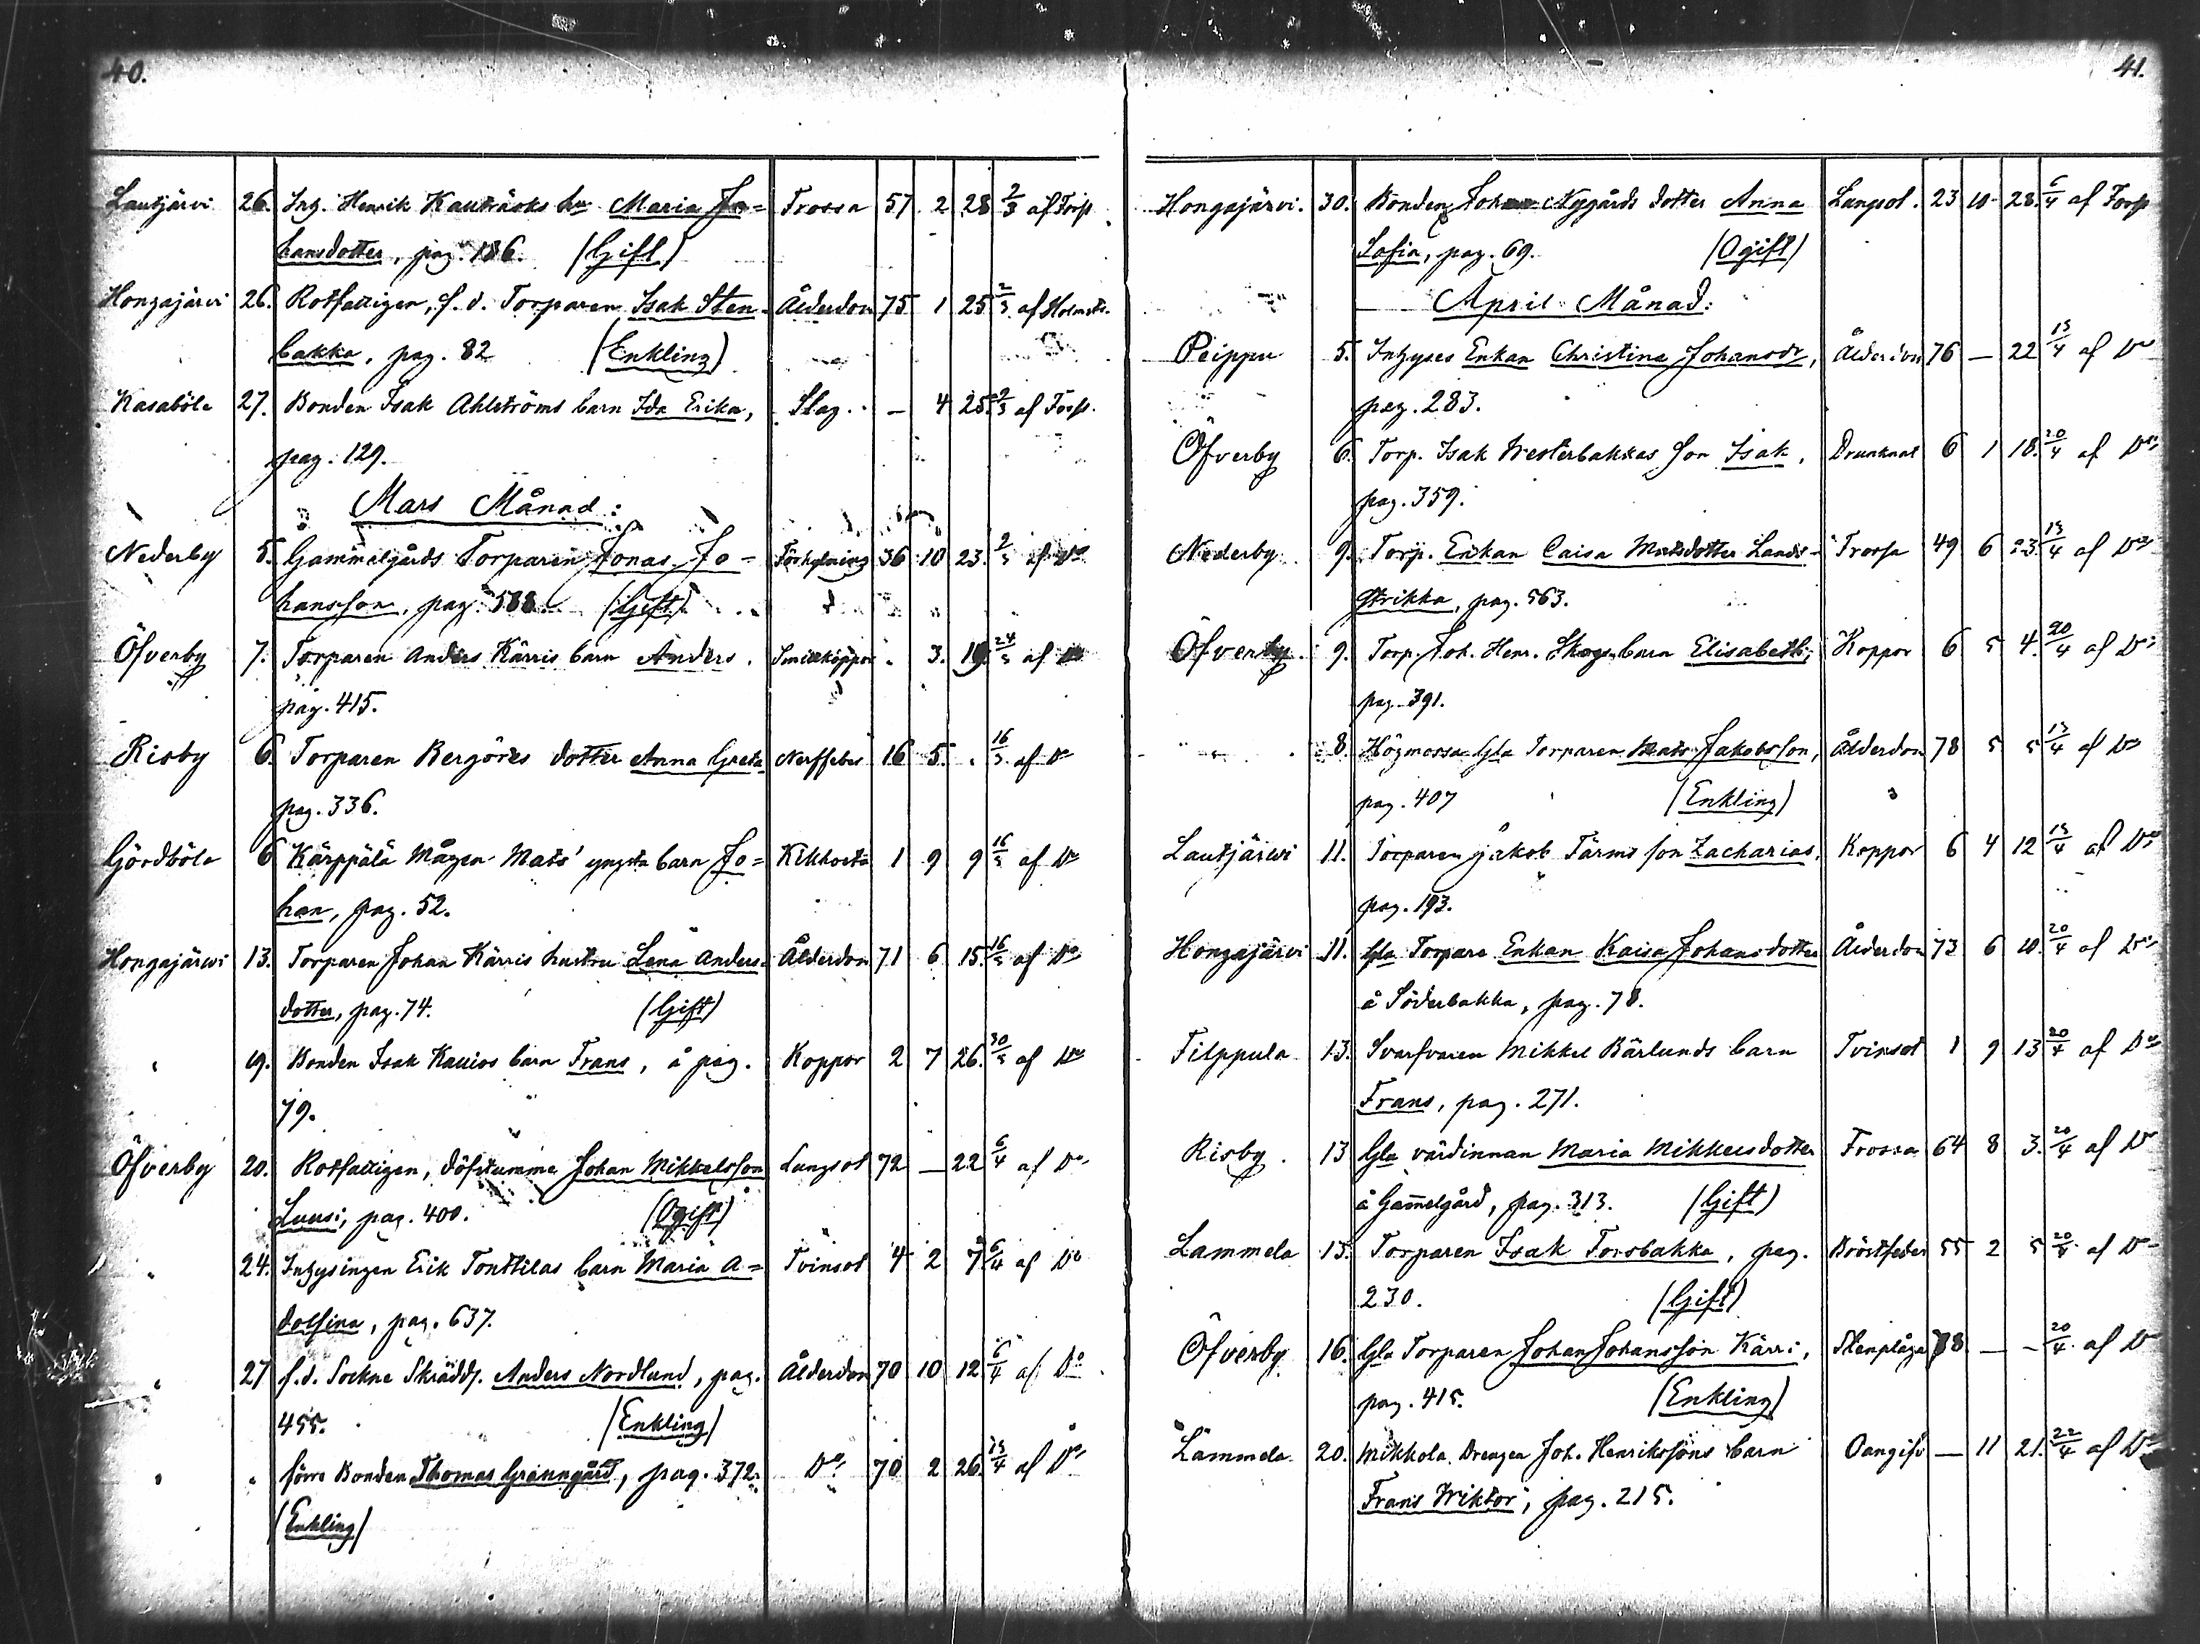 40.
Lautjärvi 26. Inh. Henrik Kauträsks hu Maria Jo=  Trossa 57 2 28 2/3 af Forss
hansdotter, pag. 186. (Gift)
Hongajärvi 26. Rotfattigen, f. d. Torparen Isak Sten= Ålderdom 75 1 25 2/3 af Holmstr.
bakka, pag. 82 (Enkling)
Kasaböle 27. Bonden Isak Ahlströms barn Ida Erika, Slag. — 4 25. 2/3 af Forss.
pag. 129.
Mars Månad:
Nederby 5. Gammelgårds Torparen Jonas Jo= Förkylning 36 10 23. af Do
hansson, pag. 588 (Gift)
Öfverby 7. Torparen Anders Kärris barn Anders. Smickoppor . 3. 19. 24/3 af Do
pag. 415.
Risby 6. Torparen Bergöres dotter Anna Greta Nerffeber 16 5. . 16/3 af Do
pag. 336.
Gördböle 6 Kärppälä Mågen Mats' yngsta barn Jo= Kikhosta 1 9 9 16/3 af Do
han, pag. 52.
Hongajärwi 13. Torparen Johan Kärris hustru Lena Anders= Ålderdom 71 6 15. 16/3 af Do
dotter, pag. 74. (Gift)
" 19. Bonden Isak Kauios barn Frans, å pag. Koppor 2 7 26. 30/3 af Do
79.
Öfverby 20. Rotfattigen, döfstumme Johan Mikkelsson Lungsot 72 — 22 6/4 af Do
Luusi, pag. 400. (Ogift)
" 24. Inhysingen Erik Tonttilas barn Maria A= Tvinsot 4 2 7 6/4 af Do
dolfina, pag. 637.
" 27 f. d. Sockne Skrädd. Anders Nordlund, pag. Ålderdom 70 10 12 6/4 af Do
455. (Enkling)
" " förre Bonden Thomas Gränngård, pag. 372. Do 70 2 26. 13/4 af Do
(Enkling)
41.
Hongajärvi. 30. Bonden Johan Nygårds dotter Anna Lungsot. 23 10 28. 6/4 af Forss
Sofia, pag. 69. (Ogift)
April Månad:
Peippu 5. Inhyses Enkan Christina Johansdr, Ålderdom 76 — 22 13/4 af Do
pag. 283.
Öfverby 6. Torp. Isak Westerbakkas son Isak, Drunknat 6 1 18. 20/4 af Do
pag. 359.
Nederby 9. Torp. Enkan Caisa Matsdotter Lands= Trossa 49 6 23. 13/4 af Do
strikka, pag. 563.
Öfverby. 9. Torp. Joh. Henr. Skogs barn Elisabeth, Koppor 6 5 4. 20/4 af Do
pag. 391.
8. Högmossa Gla Torparen Mats Jakobsson, Ålderdom 78 5 5 13/4 af Do
pag. 407 (Enkling)
Lautjärwi 11. Torparen Jakob Tärms son Zacharias, Koppor 6 4 12 13/4 af Do
pag. 193.
Hongajärvi 11. Gla Torpare Enkan Kaisa Johansdotter Ålderdom 73 6 10. 20/4 af Do
å Söderbakka, pag. 78.
Filppula 13. Svarfvaren Mikkel Bärlunds barn Tvinsot 1 9 13 20/4 af Do
Frans, pag. 271.
Risby. 13 Gla värdinnan Maria Mikkelsdotter Frossa 64 8 3. 20/4 af Do
å Gammelgård, pag. 313. (Gift)
Lammela 15. Torparen Isak Torsbakka, pag. Bröstfeber 55 2 5 20/4 af Do
230. (Gift)
Öfverby 16. Gla Torparen Johan Johansson Kärri, Stenplåga 78 — — 20/4 af Do
pag. 415. (Enkling)
Lammela 20. Mikkola Drengen Joh. Henrikssons barn Oangifv — 11 21. 22/4 af Do
Frans Wiktor, pag. 215.